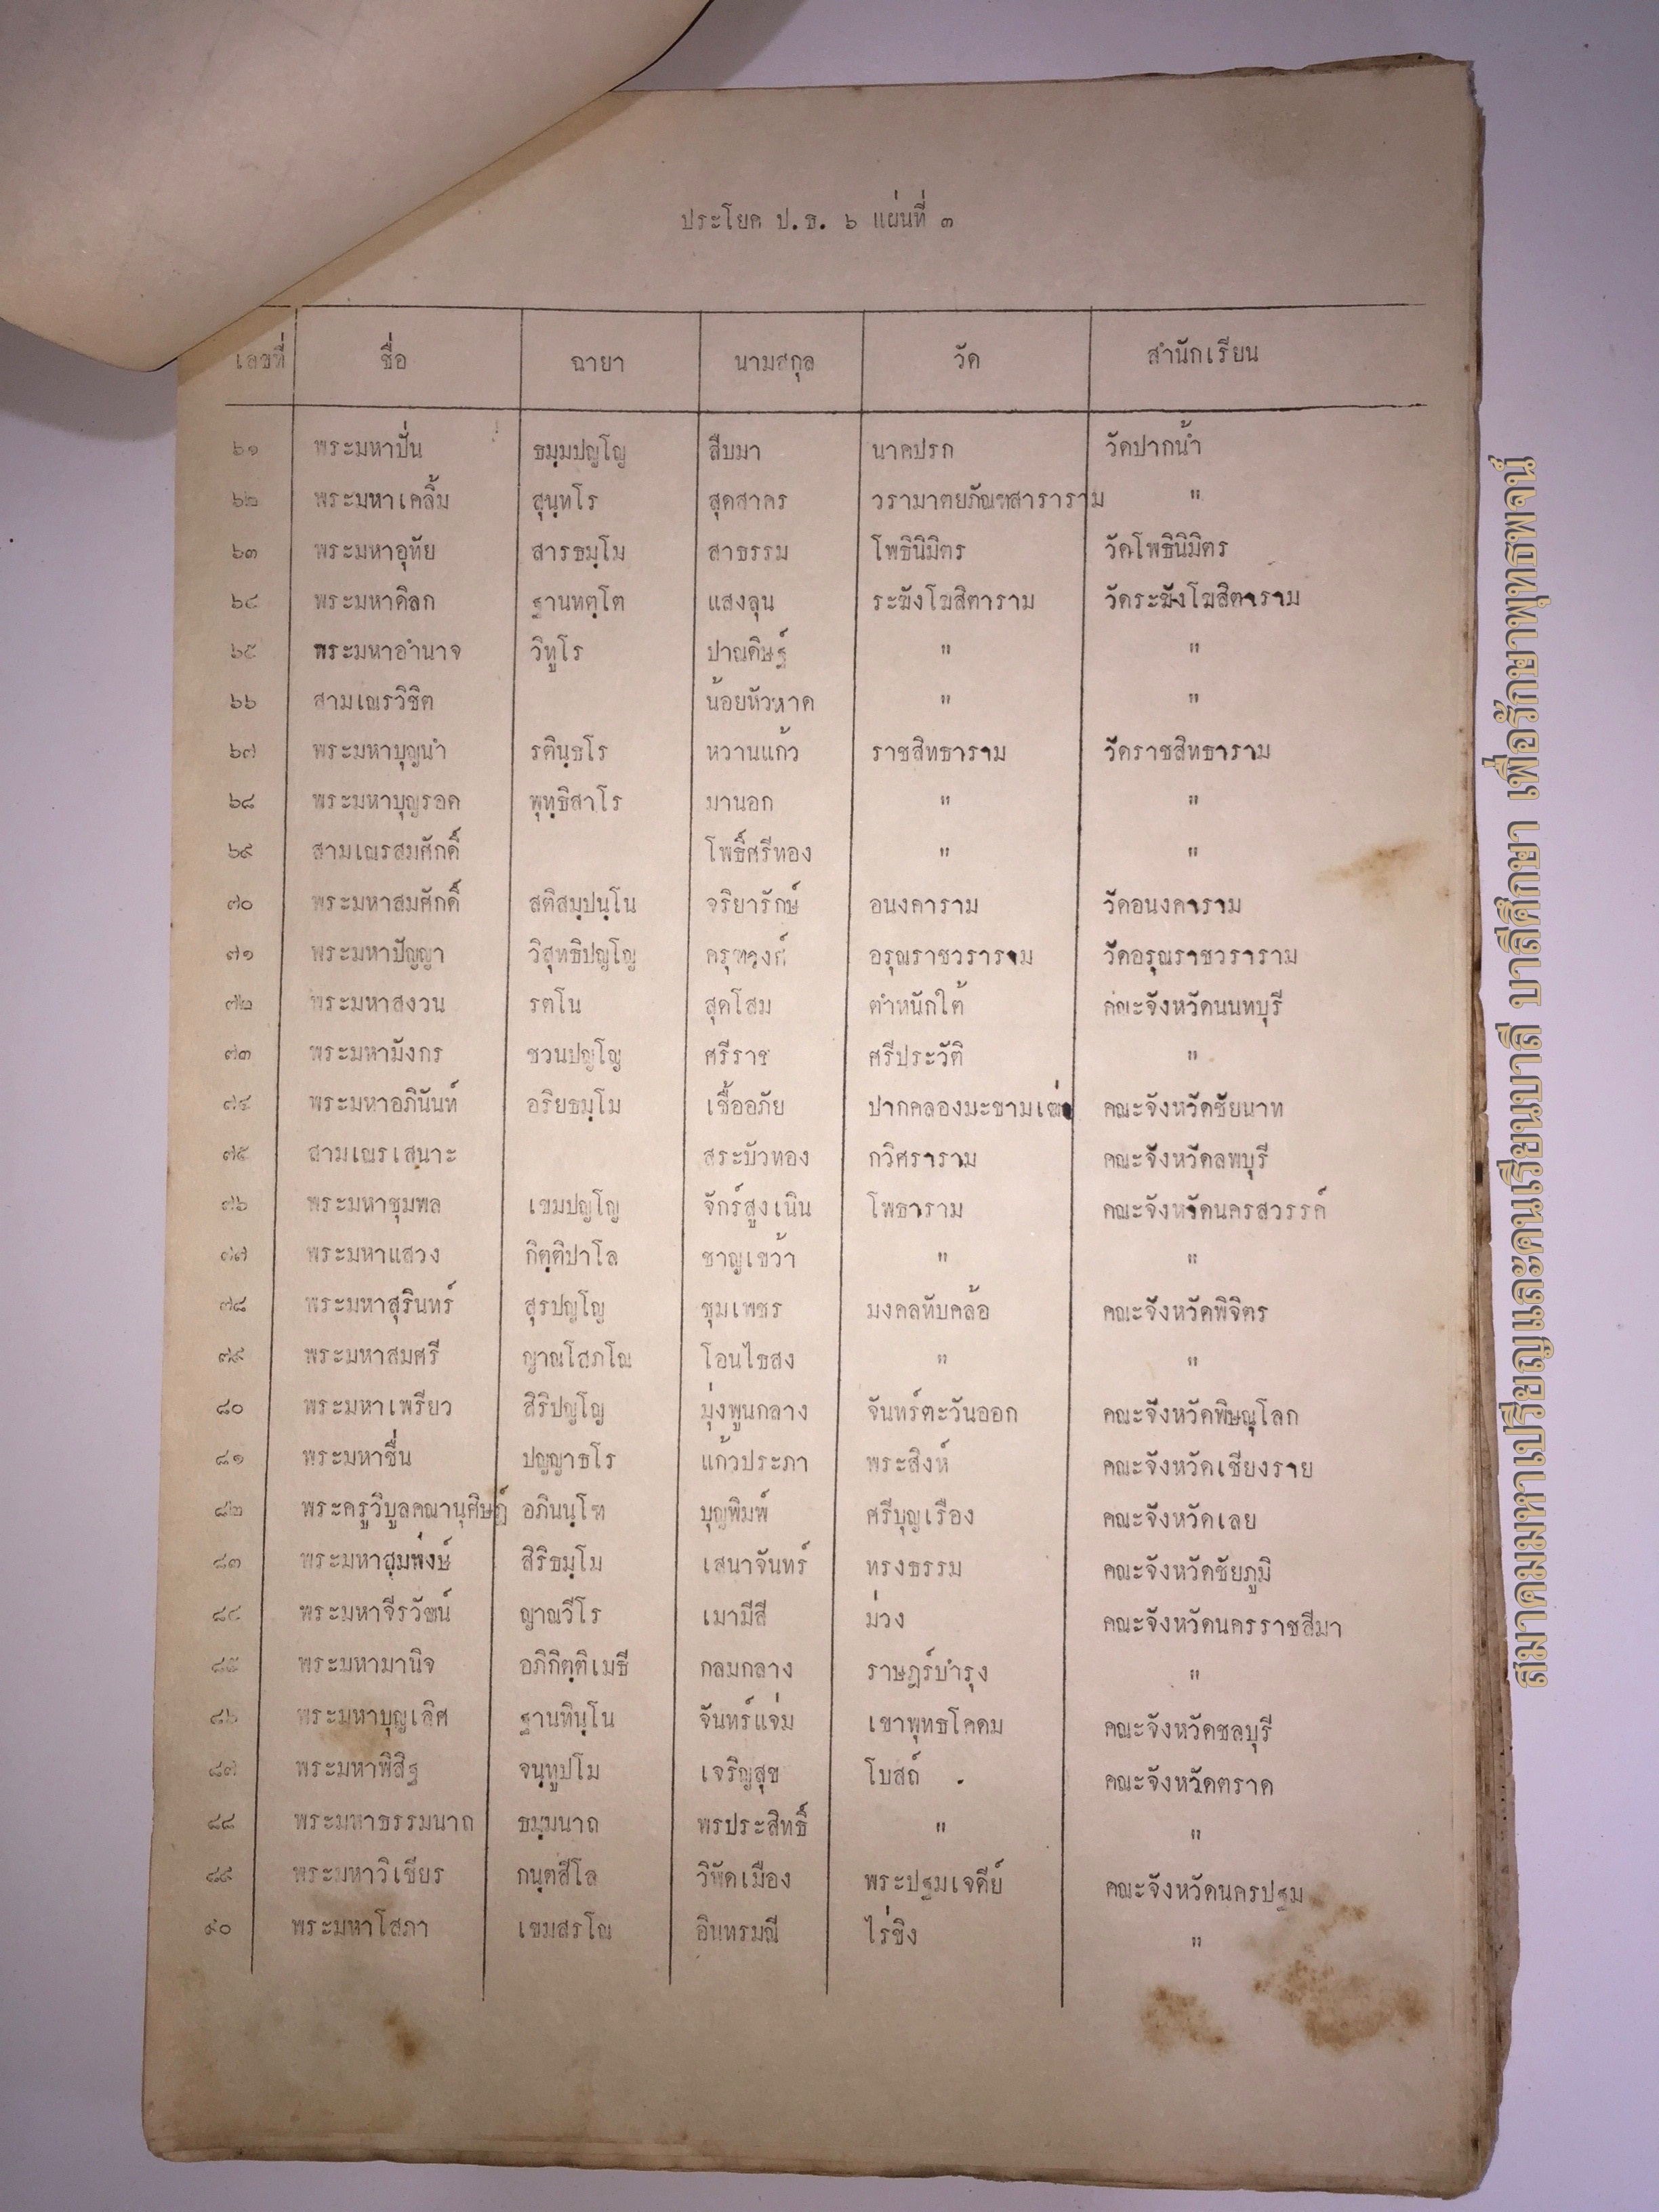 ประโยค ป.ธ. ๖ แผ่นที่ ๓
เลขที่ ชื่อ ฉายา นามสกุล วัด สำนักเรียน
๖๑ พระมหาปั่น ธมฺมปญฺโญ สืบมา นาคปรก วัดปากน้ำ
๖๒ พระมหาเคลิ้ม สุนฺทโร สุดสาคร วรามาตยภัณฑสาราราม "
๖๓ พระมหาอุทัย สารธมฺโม สาธรรม โพธินิมิตร วัดโพธินิมิตร
๖๔ พระมหาดิลก ฐานทตฺโต แสงลุน ระฆังโฆสิตาราม วัดระฆังโฆสิตาราม
๖๕ พระมหาอำนาจ วิทูโร ปาณดิษฐ์ " "
๖๖ สามเณรวิชิต น้อยหัวหาด " "
๖๗ พระมหาบุญนำ รตินฺธโร หวานแก้ว ราชสิทธาราม วัดราชสิทธาราม
๖๘ พระมหาบุญรอด พุทฺธิสาโร มานอก " "
๖๙ สามเณรสมศักดิ์ โพธิ์ศรีทอง " "
๗๐ พระมหาสมศักดิ์ สติสมฺปนฺโน จริยารักษ์ อนงคาราม วัดอนงคาราม
๗๑ พระมหาปัญญา วิสุทธิปญฺโญ ครุฑวงศ์ อรุณราชวราราม วัดอรุณราชวราราม
๗๒ พระมหาสงวน รตโน สุดโสม ตำหนักใต้ คณะจังหวัดนนทบุรี
๗๓ พระมหามังกร ชวนปญฺโญ ศรีราช ศรีประวัติ "
๗๔ พระมหาอภินันท์ อริยธมฺโม เชื้ออภัย ปากคลองมะขามเฒ่า คณะจังหวัดชัยนาท
๗๕ สามเณรเสนาะ สระบัวทอง กวิศราราม คณะจังหวัดลพบุรี
๗๖ พระมหาชุมพล เขมปญฺโญ จักร์สูงเนิน โพธาราม คณะจังหวัดนครสวรรค์
๗๗ พระมหาแสวง กิตฺติปาโล ชาญเขว้า " "
๗๘ พระมหาสุรินทร์ สุรปญฺโญ ชุมเพชร มงคลทับคล้อ คณะจังหวัดพิจิตร
๗๙ พระมหาสมศรี ญาณโสภโณ โอนไธสง " "
๘๐ พระมหาเพรียว สิริปญฺโญ มุ่งพูนกลาง จันทร์ตะวันออก คณะจังหวัดพิษณุโลก
๘๑ พระมหาชื่น ปญฺญาธโร แก้วประภา พระสิงห์ คณะจังหวัดเชียงราย
๘๒ พระครูวิบูลคณานุศิษฏ์ อภินนฺโท บุญพิมพ์ ศรีบุญเรือง คณะจังหวัดเลย
๘๓ พระมหาสุมพงษ์ สิริธมฺโม เสนาจันทร์ ทรงธรรม คณะจังหวัดชัยภูมิ
๘๔ พระมหาจีรวัฒน์ ญาณวีโร เมามีสี ม่วง คณะจังหวัดนครราชสีมา
๘๕ พระมหามานิจ อภิกิตฺติเมธี กลมกลาง ราษฎร์บำรุง "
๘๖ พระมหาบุญเลิศ ฐานทินฺโน จันทร์แจ่ม เขาพุทธโคดม คณะจังหวัดชลบุรี
๘๗ พระมหาพิสิฐ จนฺทูปโม เจริญสุข โบสถ์ คณะจังหวัดตราด
๘๘ พระมหาธรรมนาถ ธมฺมนาถ พรประสิทธิ์ " "
๘๙ พระมหาวิเชียร กนฺตสีโล วิหัดเมือง พระปฐมเจดีย์ คณะจังหวัดนครปฐม
๙๐ พระมหาโสภา เขมสรโณ อินทรมณี ไร่ขิง "
สมาคมมหาเปรียญและคนเรียนบาลี บาลีศึกษา เพื่อรักษาพุทธพจน์